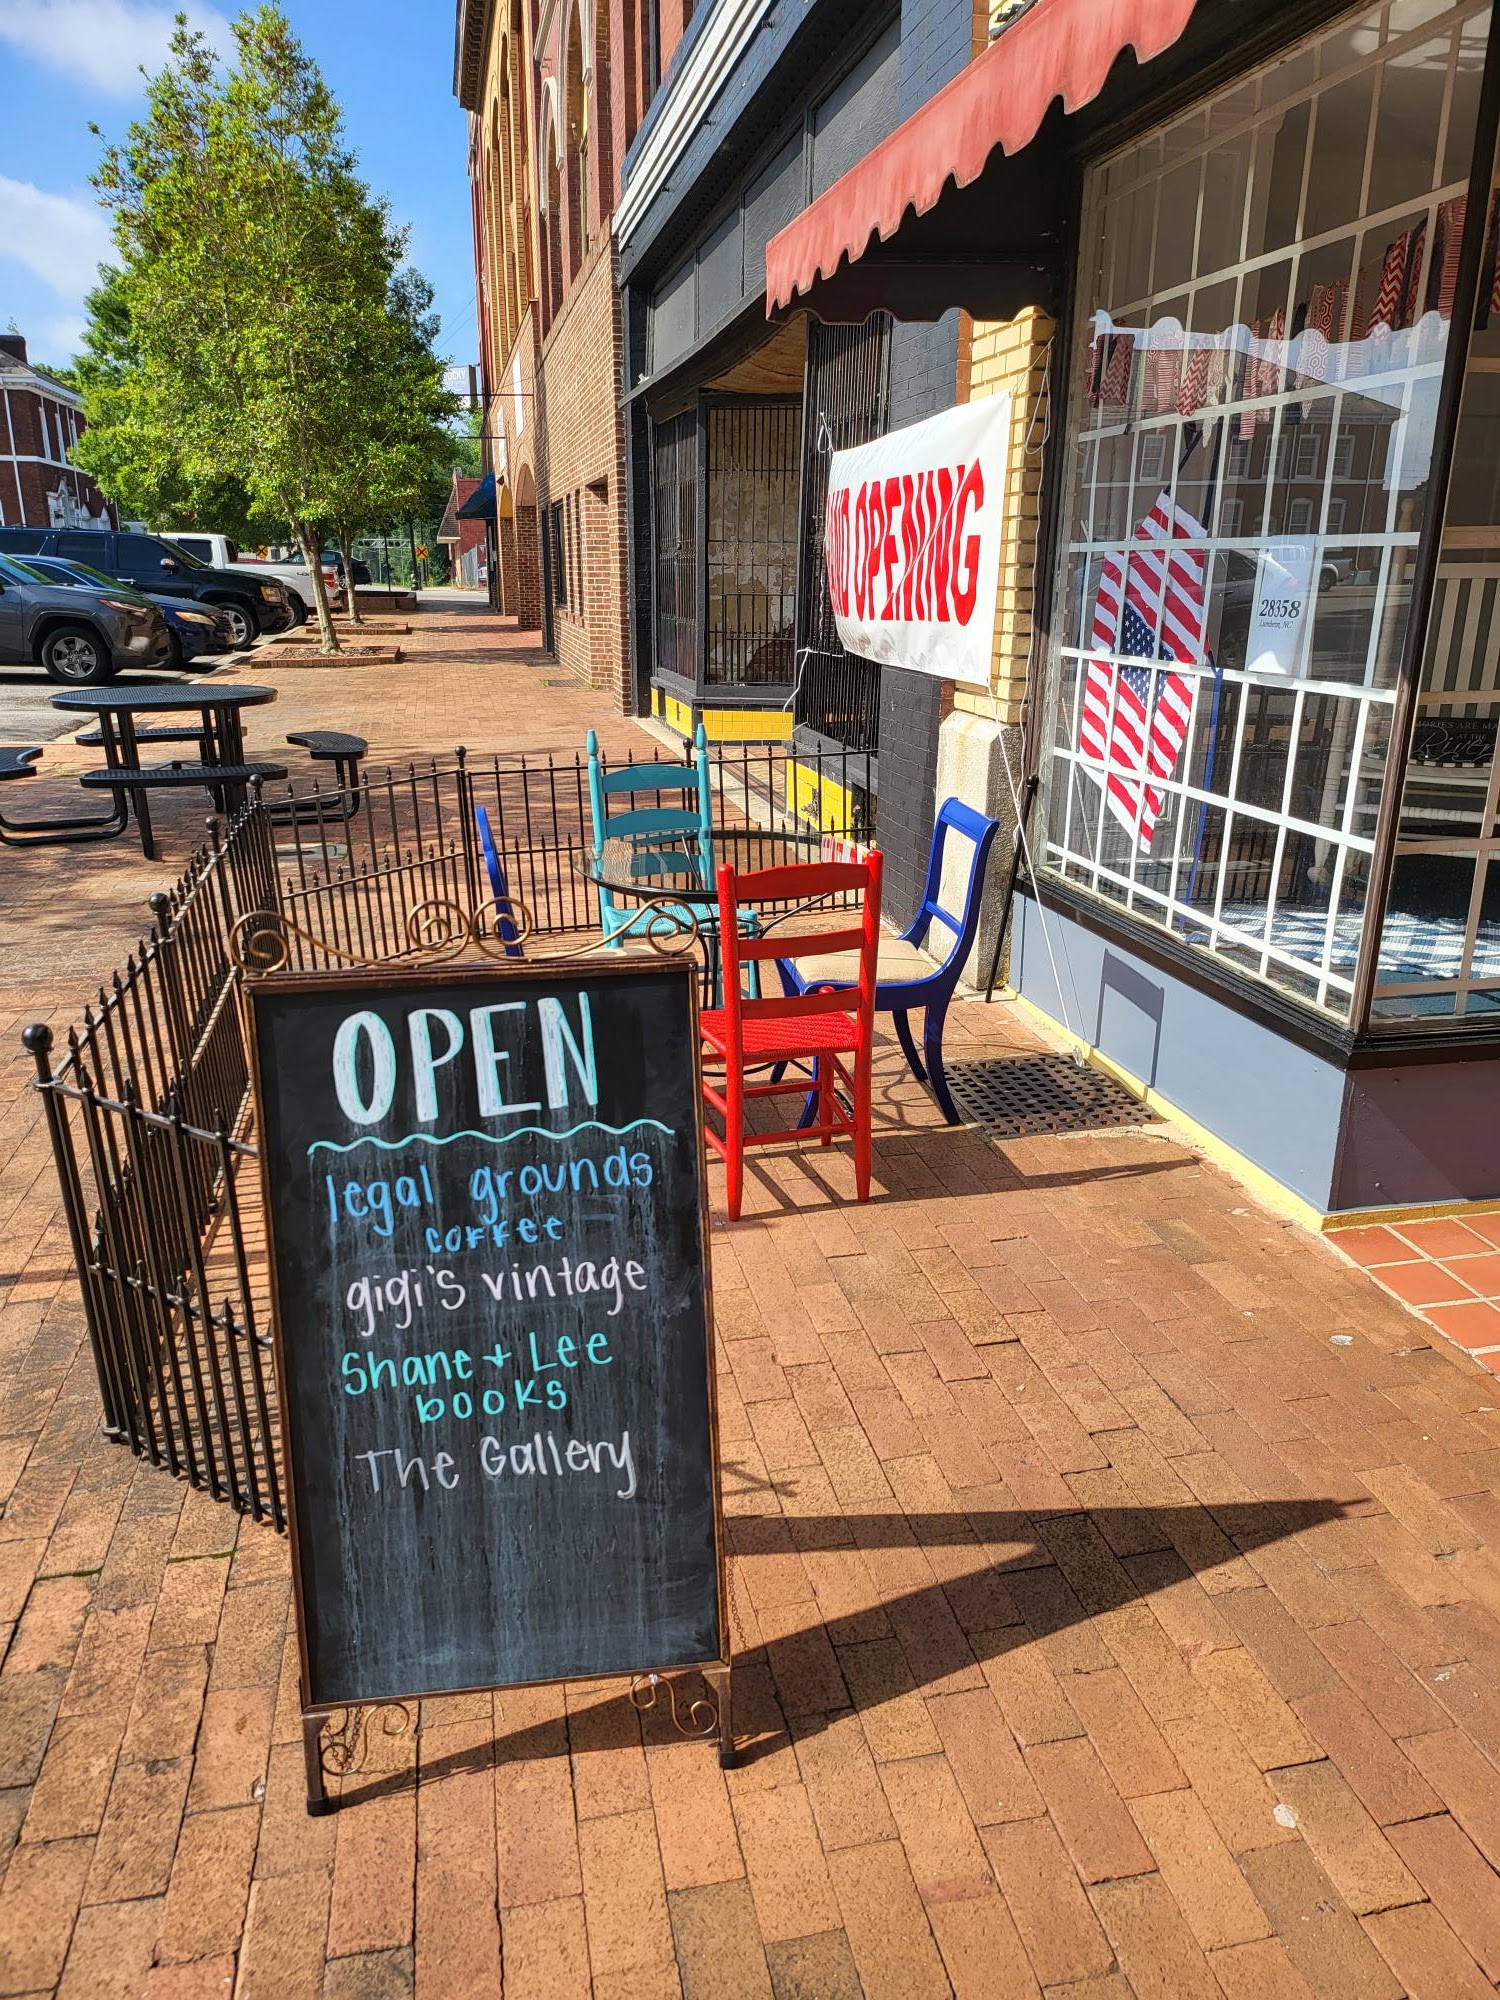 OPEN
legal grounds
coffee
gigi's vintage
Shane + Lee
books
The Gallery
OPENING
28358
Lumberton, NC
ARE MA
AT THE
River